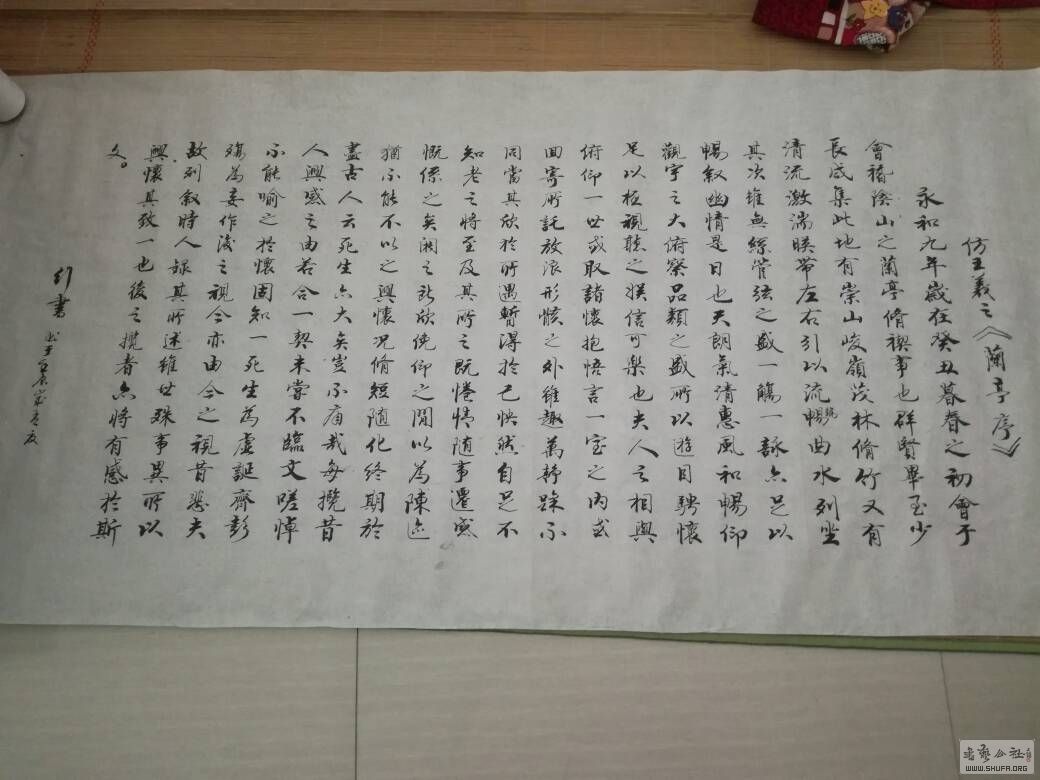 仿王羲之《蘭亭序》
永和九年歲在癸丑暮春之初會于
會稽陰山之蘭亭脩禊事也群賢畢至少
長咸集此地有崇山峻嶺茂林脩竹又有
清流激湍暎帶左右引以流觴曲水列坐
其次雖無絲管弦之盛一觴一詠亦足以
暢敘幽情是日也天朗氣清惠風和暢仰
觀宇之大俯察品類之盛所以遊目騁懷
足以極視聽之娛信可樂也夫人之相與
俯仰一世或取諸懷抱悟言一室之內或
因寄所託放浪形骸之外雖趣萬靜躁不
同當其欣於所遇暫得於己怏然自足不
知老之將至及其所之既惓情隨事遷感
慨係之矣向之所欣俛仰之間以為陳迹
猶不能不以之興懷況脩短隨化終期於
盡古人云死生亦大矣豈不痛哉每攬昔
人興感之由若合一契未嘗不臨文嗟悼
不能喻之於懷固知一死生為虛誕齊彭
殤為妄作後之視今亦由今之視昔悲夫
故列敘時人錄其所述雖世殊事異所以
興懷其致一也後之攬者亦將有感於斯
文。
行書
書公社
WWW.SHUFA.ORG